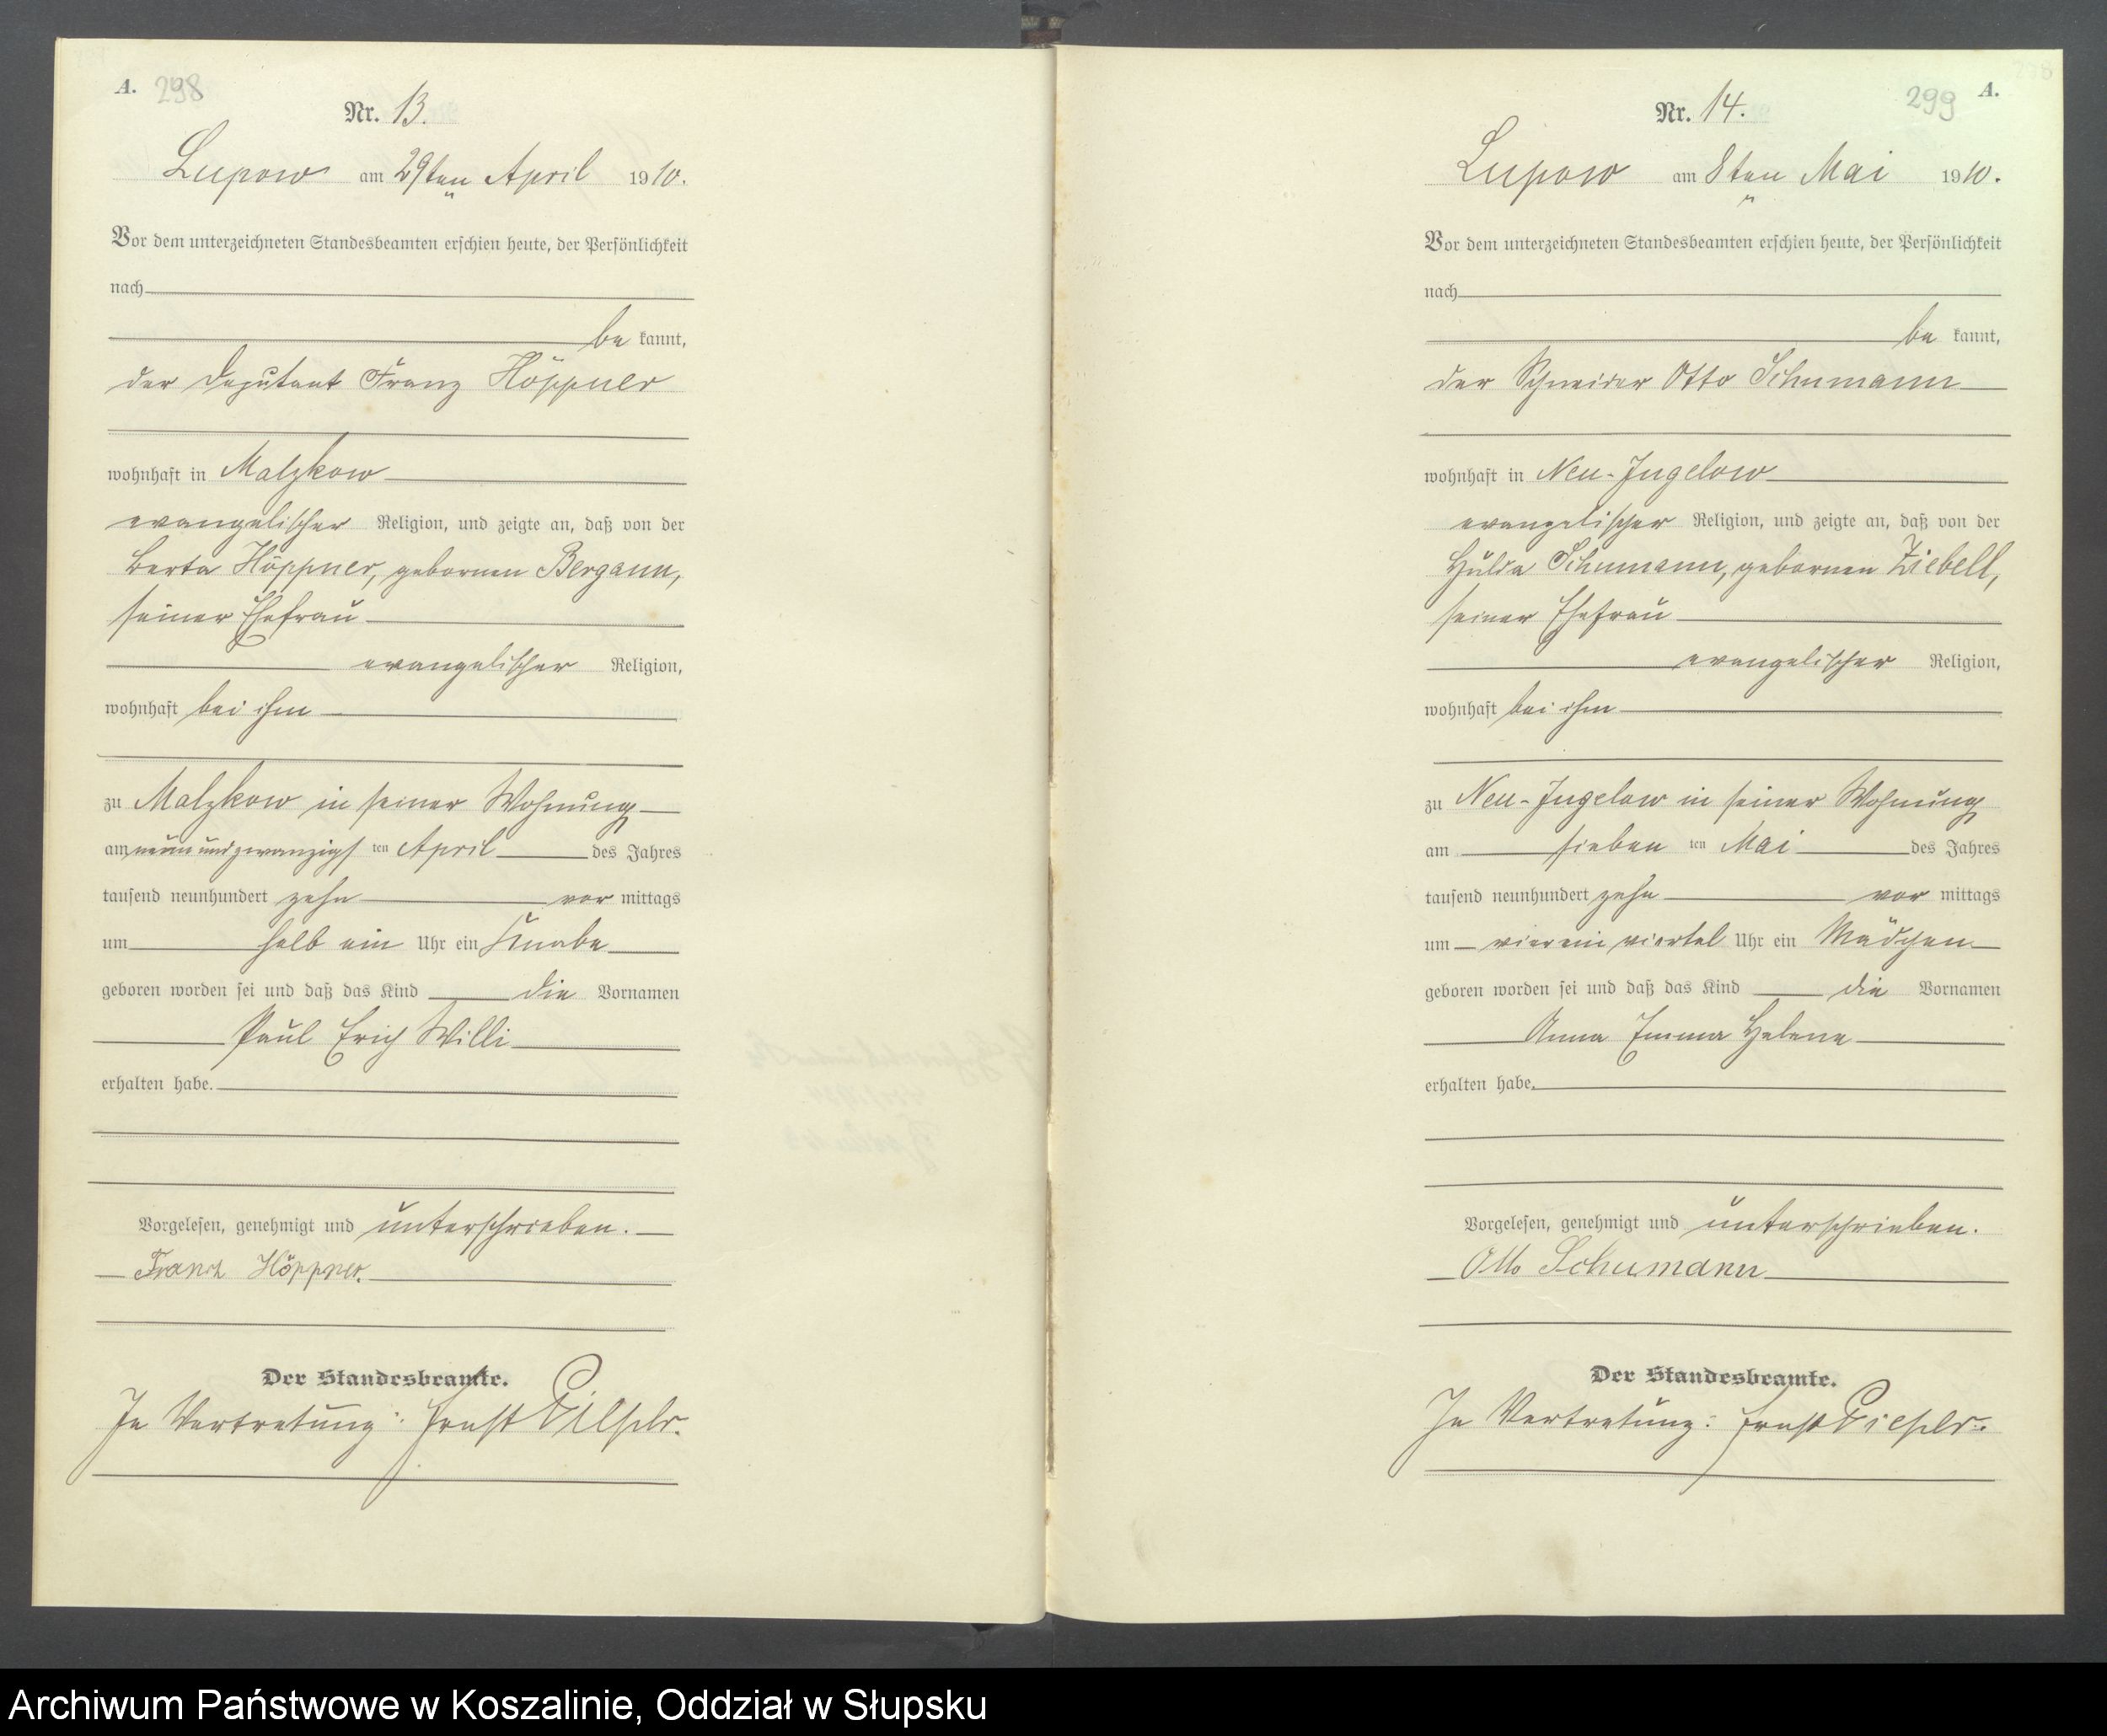 A. 298
Nr. 13.
Lupow am 29ten April 1910.
Vor dem unterzeichneten Standesbeamten erschien heute, der Persönlichkeit
nach
be kannt,
der Deputant Franz Höppner
wohnhaft in Malzkow
evangelischer Religion, und zeigte an, daß von der
Berta Höppner, geborenen Bergann,
seiner Ehefrau
evangelischer Religion,
wohnhaft bei ihm
zu Malzkow in seiner Wohnung
am neunundzwanzigs ten April des Jahres
tausend neunhundert zehn vor mittags
um halb ein Uhr ein Knabe
geboren worden sei und daß das Kind die Vornamen
Paul Erich Willi
erhalten habe.
Vorgelesen, genehmigt und unterschrieben.
Franz Höppner.
Der Standesbeamte.
In Vertretung: Ernst
299 A.
Nr. 14.
Lupow am 8ten Mai 1910.
Vor dem unterzeichneten Standesbeamten erschien heute, der Persönlichkeit
nach
be kannt,
der Schneider Otto Schumann
wohnhaft in Neu-Jugelow
evangelischer Religion, und zeigte an, daß von der
Hulda Schumann, geborenen Ziebell,
seiner Ehefrau
evangelischer Religion,
wohnhaft bei ihm
zu Neu-Jugelow in seiner Wohnung
am sieben ten Mai des Jahres
tausend neunhundert zehn vor mittags
um viereinviertel Uhr ein Mädchen
geboren worden sei und daß das Kind die Vornamen
Anna Emma Helene
erhalten habe.
Vorgelesen, genehmigt und unterschrieben.
Otto Schumann
Der Standesbeamte.
In Vertretung: Ernst
Archiwum Państwowe w Koszalinie, Oddział w Słupsku